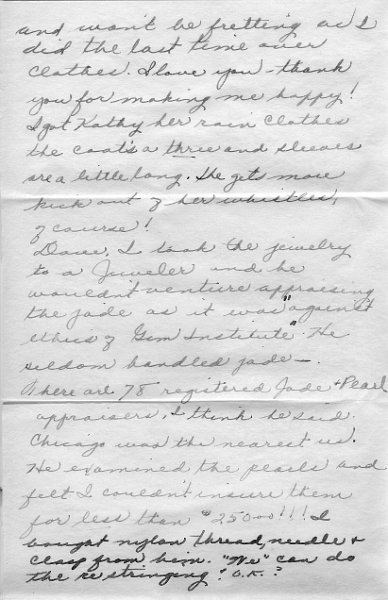 and won't be fretting as I
did the last time over
clothes. I love you - thank
you for making me happy!
I got Kathy her rain clothes
the coat's a three and sleeves
are a little long. She gets more
kick out of her whistles,
of course!
Dave, I took the jewelry
to a Jeweler and he
wouldn't venture appraising
the jade as it was "against
ethics of Gem Institute". He
seldom handled jade —.
There are 78 registered Jade & Pearl
appraisers, I think he said.
Chicago was the nearest us.
He examined the pearls and
felt I couldn't insure them
for less than $250.00!!! I
bought nylon thread, needle &
clasp from him. "We" can do
the restringing! O.K.?